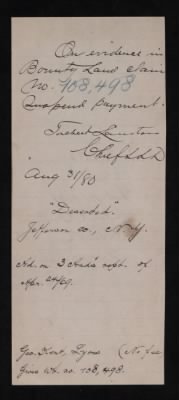 On evidence in
Bounty Land Claim
No. 108,498
Suspend payment.
Chief
Aug 31/80
"Deserted".
Jefferson co., N.Y.
Ad. on 3 Aud's rept. of
Apr. 24/69.
Geo. Kent, Lyons (No fee
Gives Wt. no. 108,498.